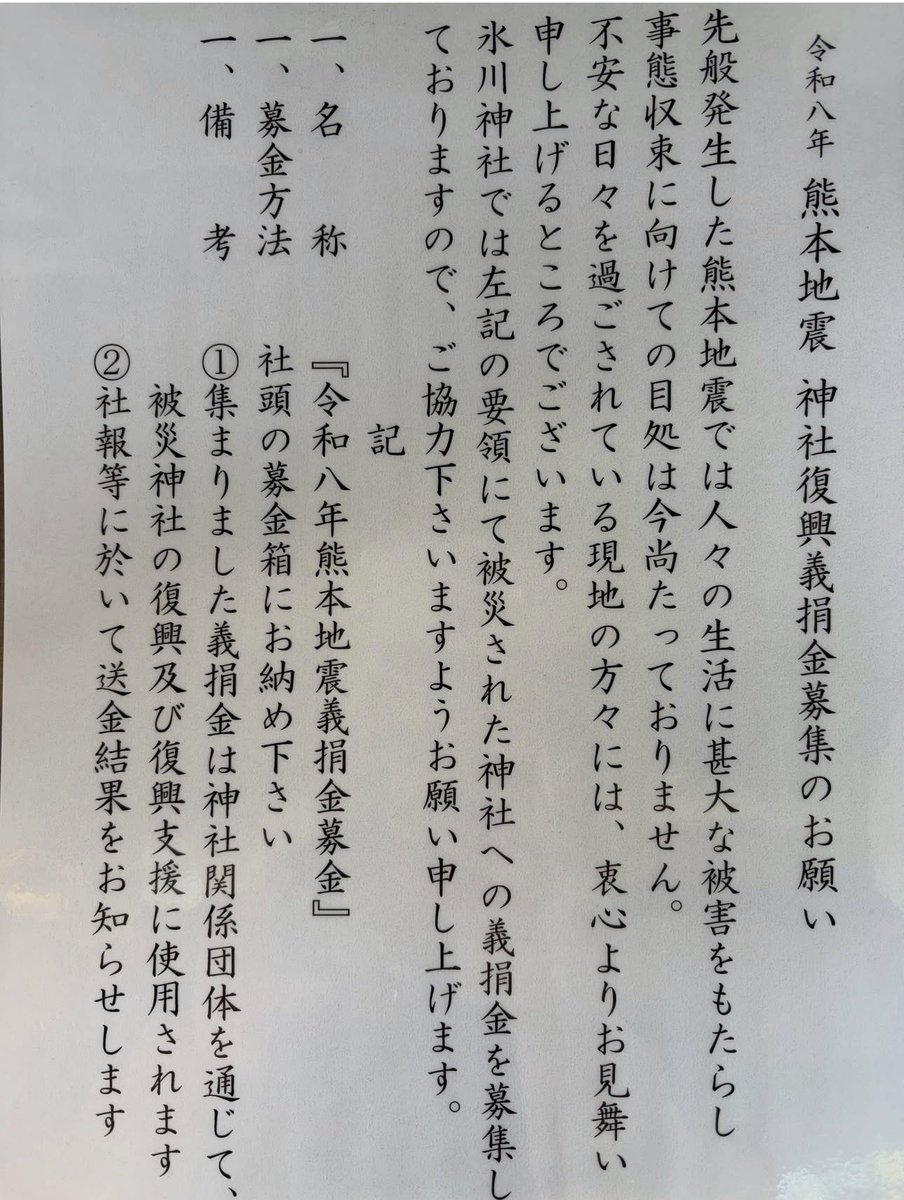 令和八年 熊本地震 神社復興義捐金募集のお願い
先般発生した熊本地震では人々の生活に甚大な被害をもたらし
事態収束に向けての目処は今尚たっておりません。
不安な日々を過ごされている現地の方々には、衷心よりお見舞い
申し上げるところでございます。
氷川神社では左記の要領にて被災された神社への義捐金を募集し
ておりますので、ご協力下さいますようお願い申し上げます。
記
一、名称 『令和八年熊本地震義捐金募金』
一、募金方法 社頭の募金箱にお納め下さい
一、備考 ①集まりました義捐金は神社関係団体を通じて、
被災神社の復興及び復興支援に使用されます
②社報等に於いて送金結果をお知らせします